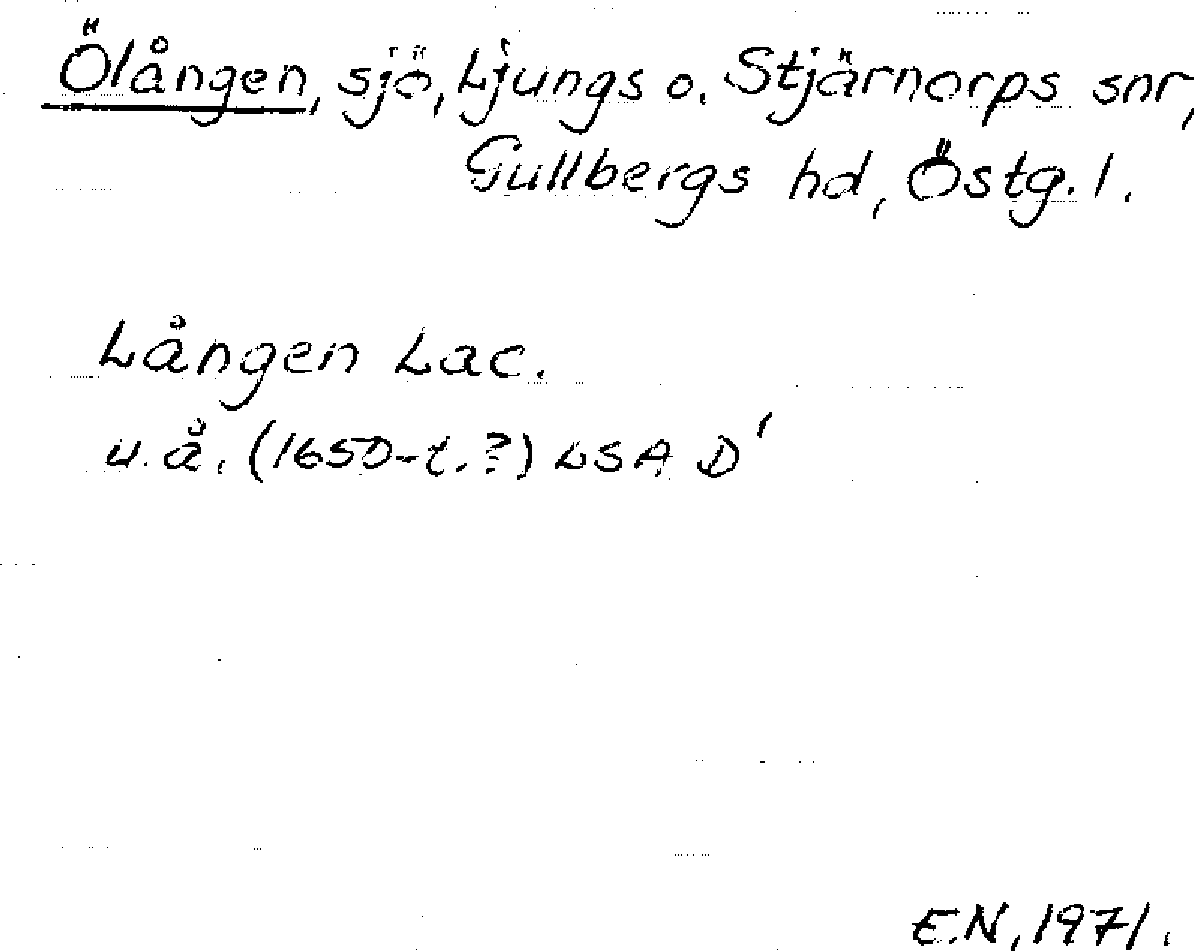 Ölången, sjö, Ljungs o. Stjärnorps snr,
Gullbergs hd, Östg. l.
Lången Lac.
u. å. (1650-t.?) LSA D'
E.N, 1971.